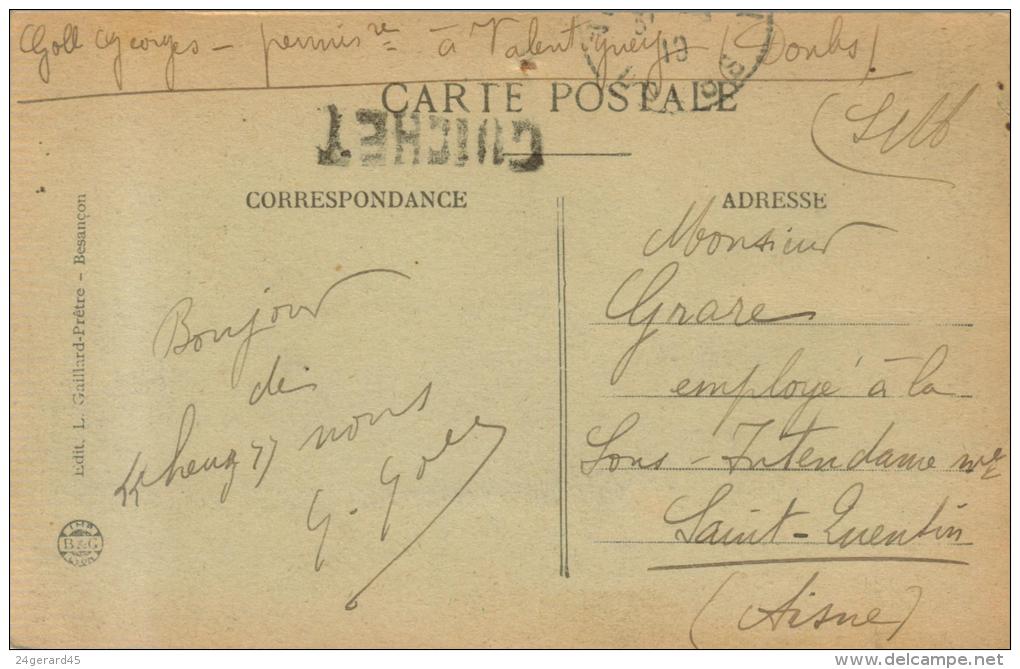 Goll Georges - permis^re à Valentigney (Doubs)
19
CARTE POSTALE
GUICHET
CORRESPONDANCE
ADRESSE
Edit. L. Gaillard-Prêtre - Besançon
Monsieur
Grare
employé à la
Sous-Intendance m^re
Saint-Quentin
(Aisne)
Bonjour
de
"chez" nous
G. Goll
IMP
B & G
LYON
24gerard45
www.delcampe.net